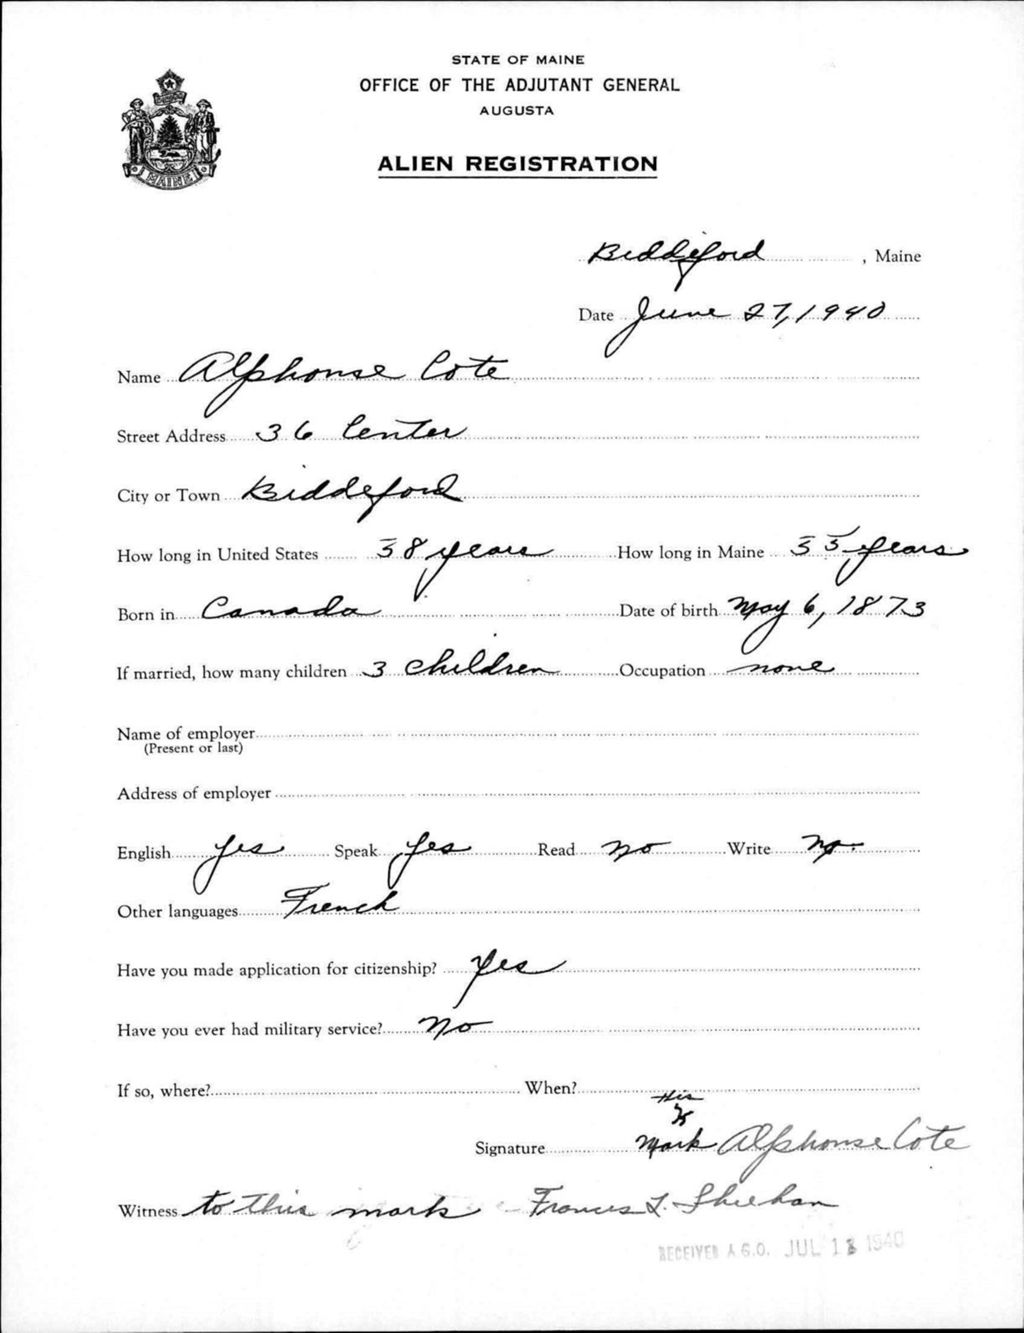 STATE OF MAINE
OFFICE OF THE ADJUTANT GENERAL
AUGUSTA
ALIEN REGISTRATION
MAINE
Biddeford, Maine
Date June 27, 1940
Name Alphonse Cote
Street Address 36 Center
City or Town Biddeford
How long in United States 38 years How long in Maine 35 years
Born in Canada Date of birth May 6, 1873
If married, how many children 3 children Occupation none
Name of employer
(Present or last)
Address of employer
English yes Speak yes Read no Write no
Other languages French
Have you made application for citizenship? Yes
Have you ever had military service? No
If so, where? When?
His
X
Signature Mark Alphonse Cote
Witness to this mark Francis L. Sheehan
RECEIVED A.G.O. JUL 1940